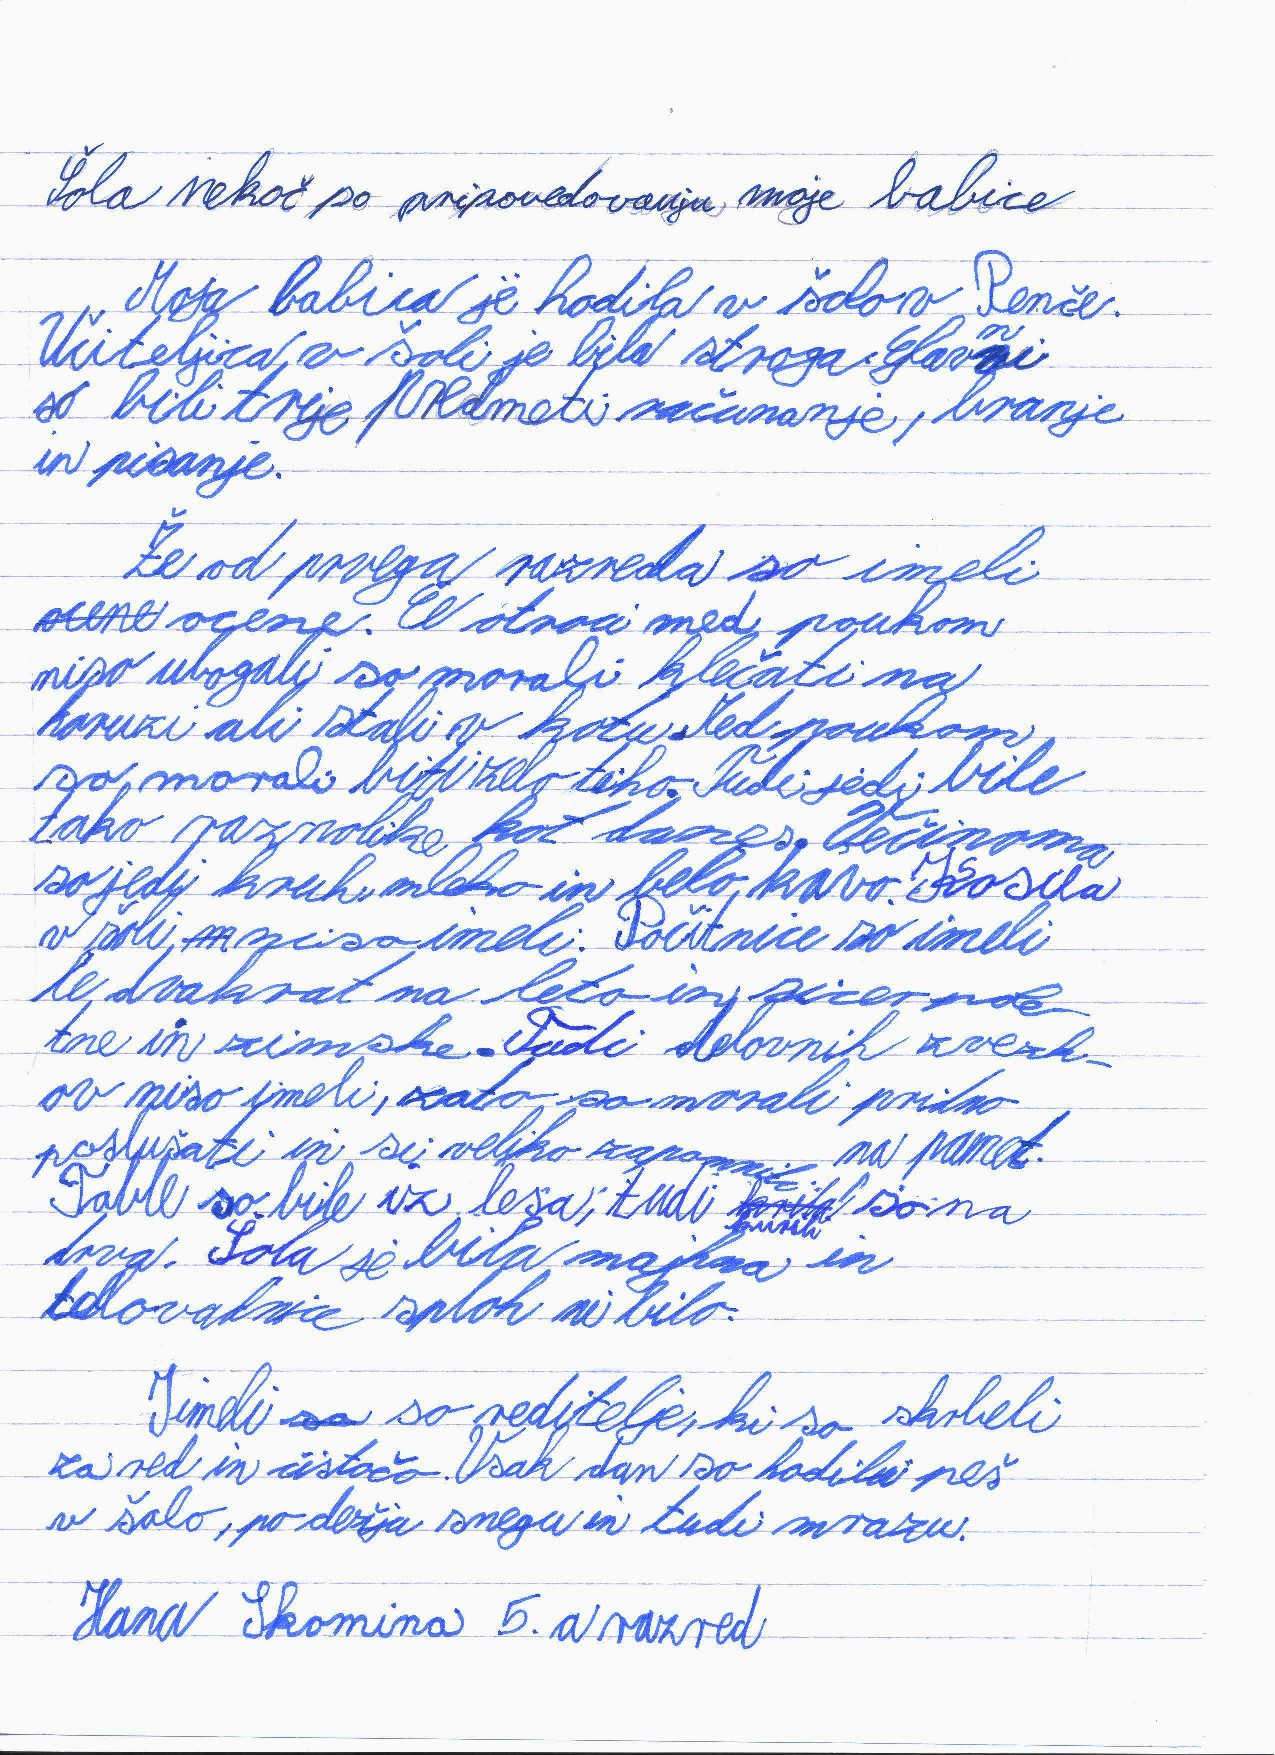 Šola nekoč po pripovedovanju moje babice
Moja babica je hodila v šolo v Penče.
Učiteljica v šoli je bila stroga. Glavni
so bili trije predmeti računanje, branje
in pisanje.
Že od prvega razreda so imeli
ocene ocene. Če otroci med poukom
niso ubogali so morali klečati na
koruzi ali stali v kotu. Med poukom
so morali biti zelo tiho. Tudi jedi bile
tako raznolike kot danes. Večinoma
so jedli kruh, mleko in belo kavo. Kosila
v šoli niso imeli. Počitnice so imeli
le dvakrat na leto in sicer pole-
tne in zimske. Tudi delovnih zvezk-
ov niso imeli, zato so morali pridno
poslušati in si veliko zapomniti na pamet.
Table so bile iz lesa, tudi kurili so na
drva. Šola je bila majhna in
telovadnice sploh ni bilo.
Imeli so so reditelje, ki so skrbeli
za red in čistočo. Vsak dan so hodili peš
v šolo, po dežju snegu in tudi mrazu.
Hana Skomina 5. a razred